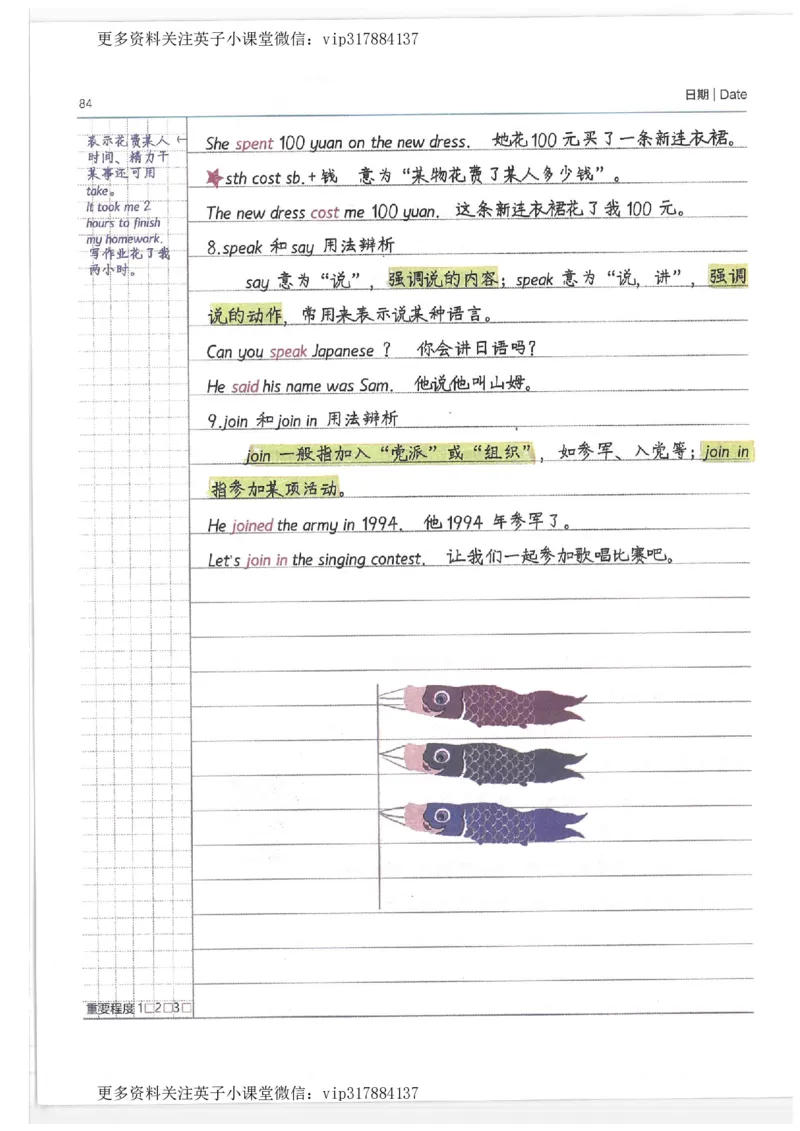 更多资料关注英子小课堂微信：vip317884137
84
日期 | Date
表示花费某人 ←
时间、精力干
某事还可用
take。
It took me 2
hours to finish
my homework.
写作业花了我
两小时。
She spent 100 yuan on the new dress. 她花100元买了一条新连衣裙。
★sth cost sb.+钱 意为“某物花费了某人多少钱”。
The new dress cost me 100 yuan. 这条新连衣裙花了我100元。
8.speak 和 say 用法辨析
say 意为“说”，强调说的内容；speak 意为“说，讲”，强调
说的动作，常用来表示说某种语言。
Can you speak Japanese ？ 你会讲日语吗？
He said his name was Sam. 他说他叫山姆。
9.join 和 join in 用法辨析
join 一般指加入“党派”或“组织”，如参军、入党等；join in
指参加某项活动。
He joined the army in 1994. 他1994年参军了。
Let's join in the singing contest. 让我们一起参加歌唱比赛吧。
重要程度 1□2□3□
更多资料关注英子小课堂微信：vip317884137